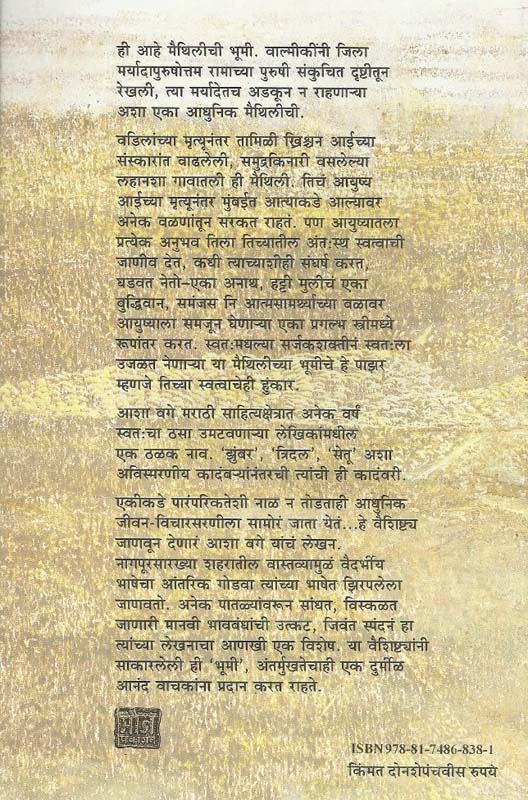 ही आहे मैथिलीची भूमी. वाल्मीकींनी जिला
मर्यादापुरुषोत्तम रामाच्या पुरुषी संकुचित दृष्टीतून
रेखली, त्या मर्यादेतच अडकून न राहणाऱ्या
अशा एका आधुनिक मैथिलीची.
वडिलांच्या मृत्यूनंतर तामिळी ख्रिश्चन आईच्या
संस्कारांत वाढलेली, समुद्रकिनारी वसलेल्या
लहानशा गावातली ही मैथिली. तिचं आयुष्य
आईच्या मृत्यूनंतर मुंबईत आत्याकडे आल्यावर
अनेक वळणांतून सरकत राहतं. पण आयुष्यातला
प्रत्येक अनुभव तिला तिच्यातील अंतःस्थ स्वत्वाची
जाणीव देत, कधी त्याच्याशीही संघर्ष करत,
घडवत नेतो–एका अनाथ, हट्टी मुलीचं एका
बुद्धिवान, समंजस नि आत्मसामर्थ्याच्या बळावर
आयुष्याला समजून घेणाऱ्या एका प्रगल्भ स्त्रीमध्ये
रूपांतर करत. स्वतःमधल्या सर्जकशक्तीनं स्वतःला
उजळत नेणाऱ्या या मैथिलीच्या भूमीचे हे पाझर
म्हणजे तिच्या स्वत्वाचेही हुंकार.
आशा बगे मराठी साहित्यक्षेत्रात अनेक वर्षं
स्वतःचा ठसा उमटवणाऱ्या लेखिकांमधील
एक ठळक नाव. ‘झुंबर’, ‘त्रिदल’, ‘सेतू’ अशा
अविस्मरणीय कादंबऱ्यांनंतरची त्यांची ही कादंबरी.
एकीकडे पारंपरिकतेशी नाळ न तोडताही आधुनिक
जीवन-विचारसरणीला सामोरं जाता येतं...हे वैशिष्ट्य
जाणवून देणारं आशा बगे यांचं लेखन.
नागपूरसारख्या शहरातील वास्तव्यामुळं वैदर्भीय
भाषेचा आंतरिक गोडवा त्यांच्या भाषेत झिरपलेला
जाणवतो. अनेक पातळ्यांवरून सांधत, विस्कळत
जाणारी मानवी भावबंधांची उत्कट, जिवंत स्पंदनं हा
त्यांच्या लेखनाचा आणखी एक विशेष. या वैशिष्ट्यांनी
साकारलेली ही ‘भूमी’, अंतर्मुखतेचाही एक दुर्मीळ
आनंद वाचकांना प्रदान करत राहते.
मौज
प्रकाशन
ISBN 978-81-7486-838-1
किंमत दोनशेपंचवीस रुपये